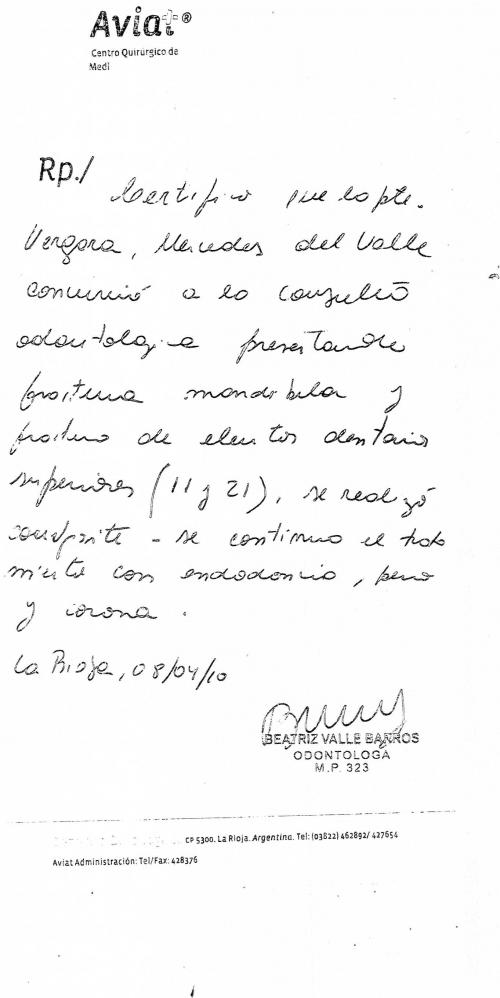 Aviat®
Centro Quirúrgico de
Medi
Rp./
Certifico que la pte.
Vergara, Mercedes del Valle
concurrió a la consulta
odontologica presentando
fractura mandibular y
fractura de elementos dentarios
superiores (11 y 21), se realizó
composite - se continua el trata
miento con endodoncia, perno
y corona.
La Rioja, 08/04/10
BEATRIZ VALLE BARROS
ODONTOLOGA
M.P. 323
CP 5300. La Rioja. Argentina. Tel: (03822) 462892/ 427654
Aviat Administración: Tel/Fax: 428376